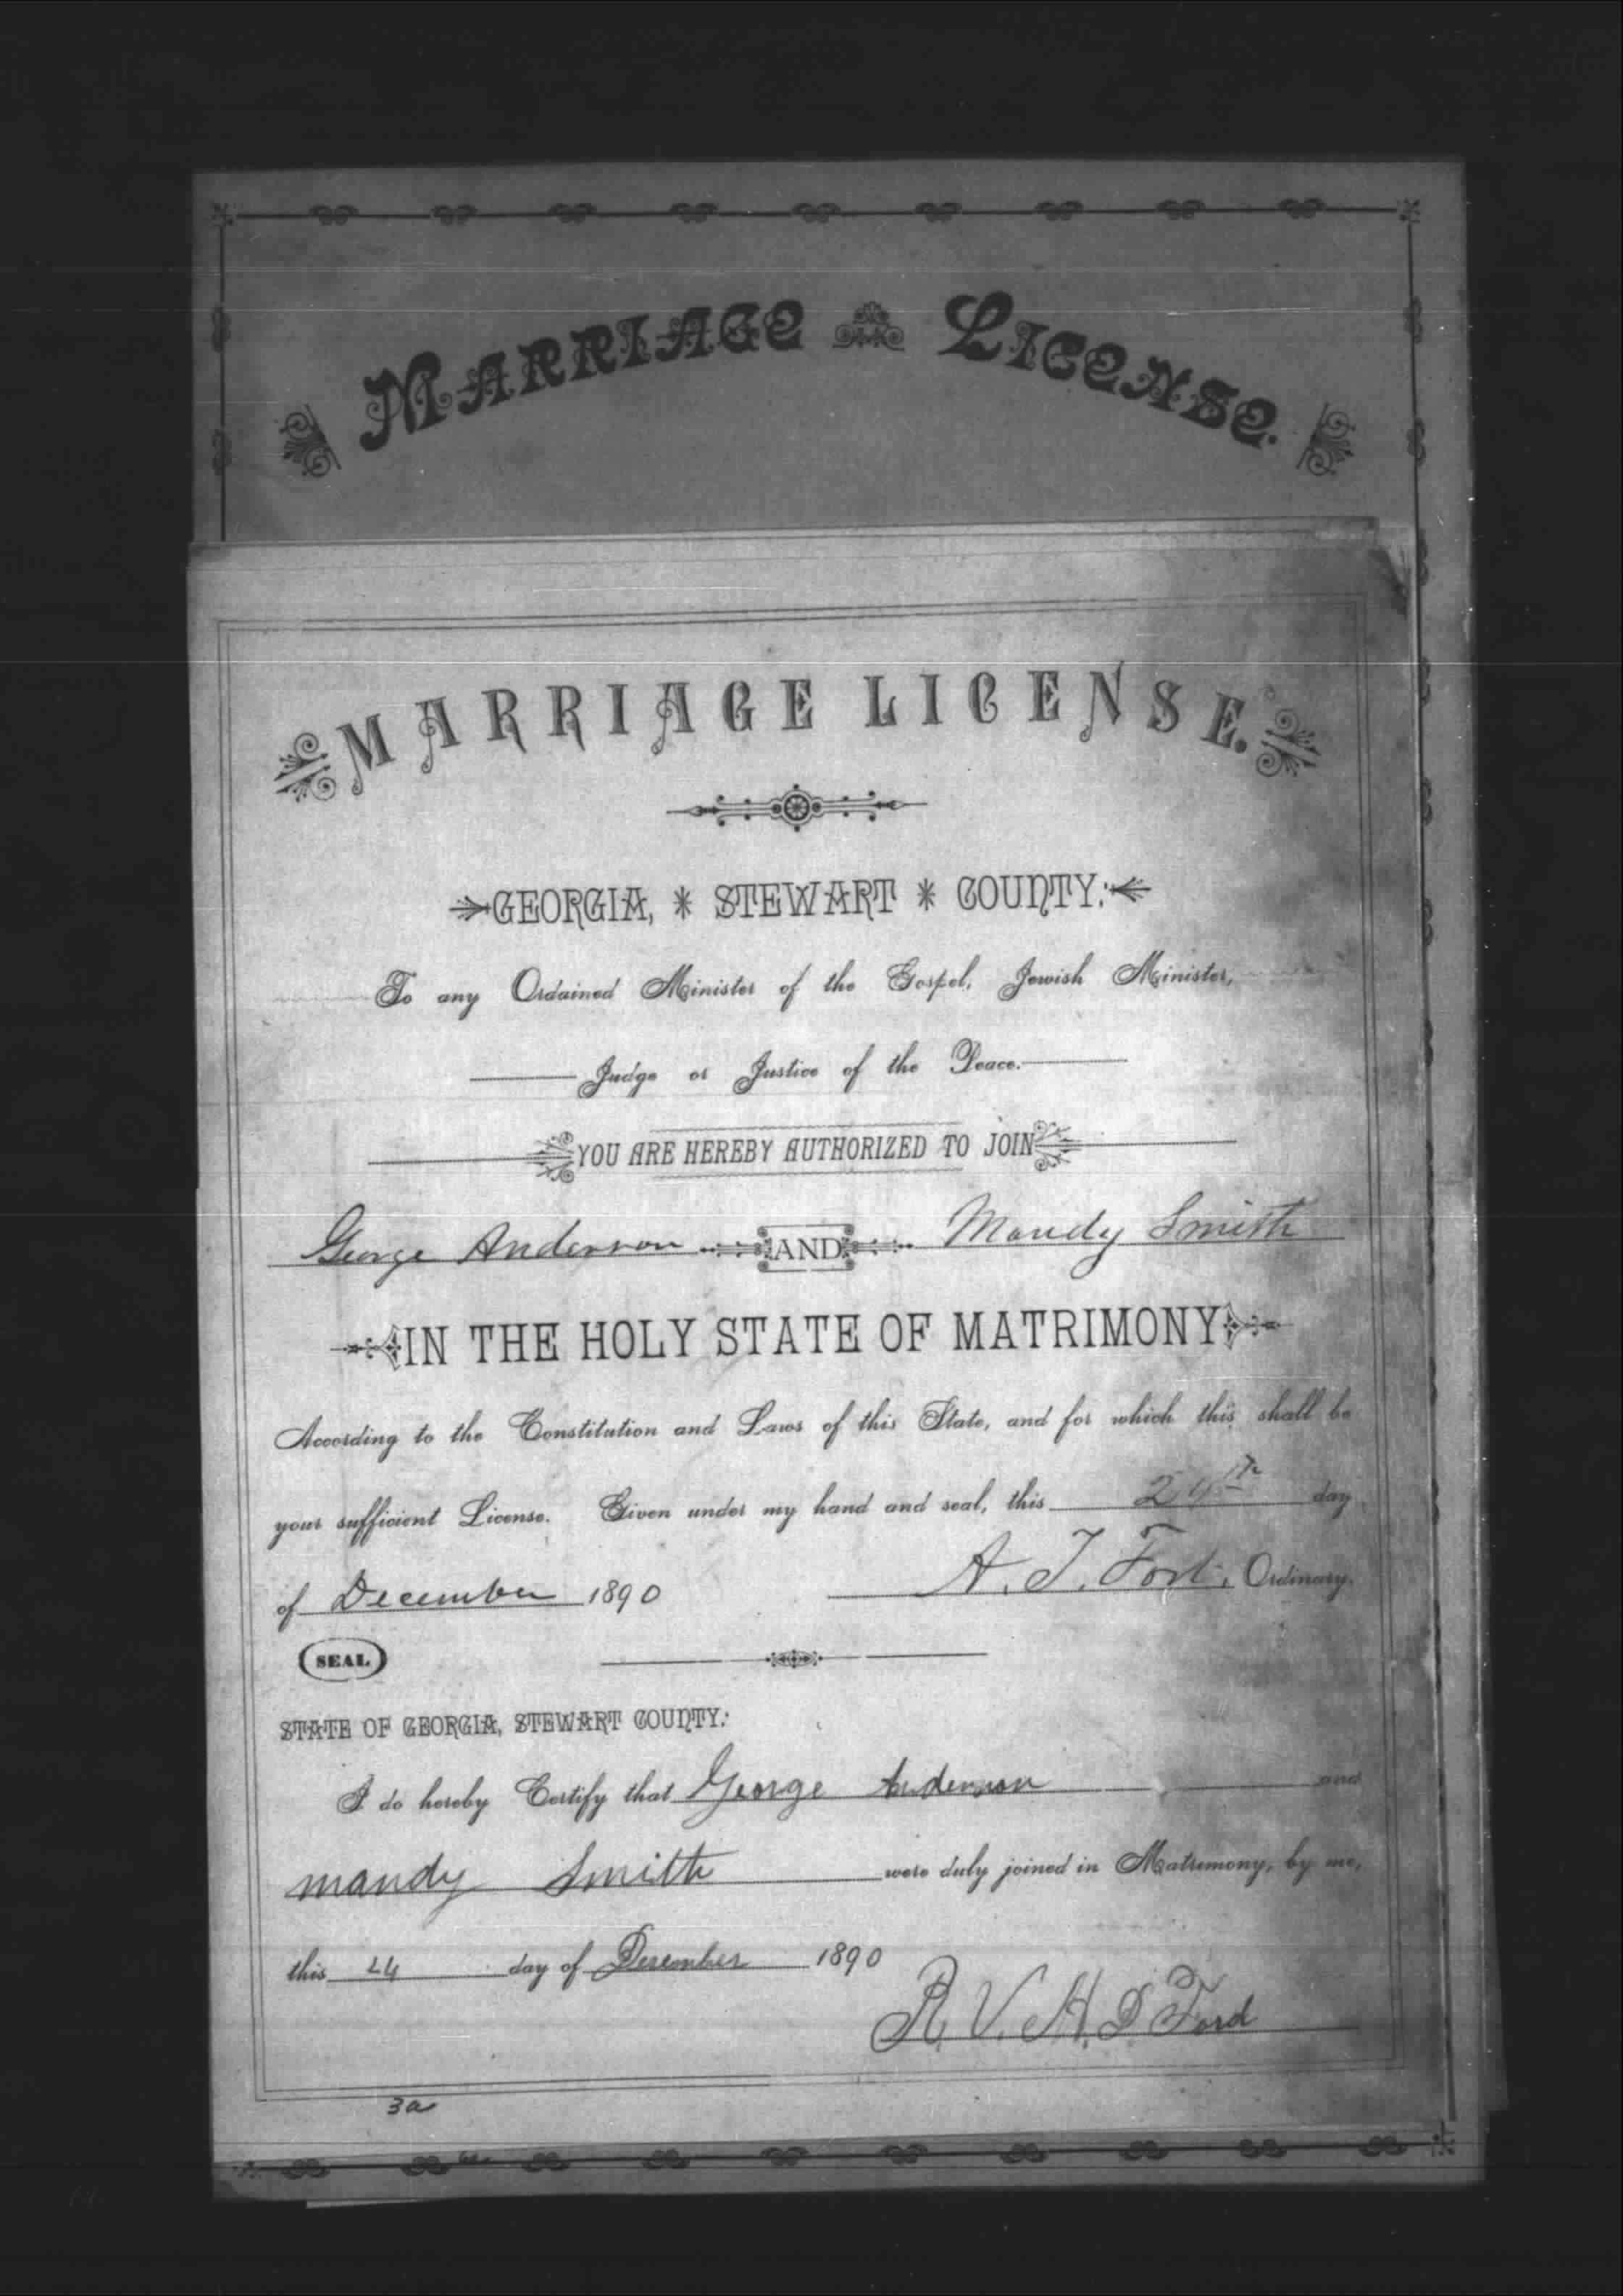 MARRIAGE LICENSE.
MARRIAGE LICENSE.
GEORGIA, * STEWART * COUNTY:
To any Ordained Minister of the Gospel, Jewish Minister,
Judge or Justice of the Peace.
YOU ARE HEREBY AUTHORIZED TO JOIN
George Anderson AND Mandy Smith
IN THE HOLY STATE OF MATRIMONY
According to the Constitution and Laws of this State, and for which this shall be
your sufficient License. Given under my hand and seal, this 24th day
of December 1890 A. T. Fort, Ordinary.
SEAL
STATE OF GEORGIA, STEWART COUNTY:
I do hereby Certify that George Anderson and
mandy Smith were duly joined in Matrimony, by me,
this 24 day of December 1890
R. V. H. D. Ford
3a